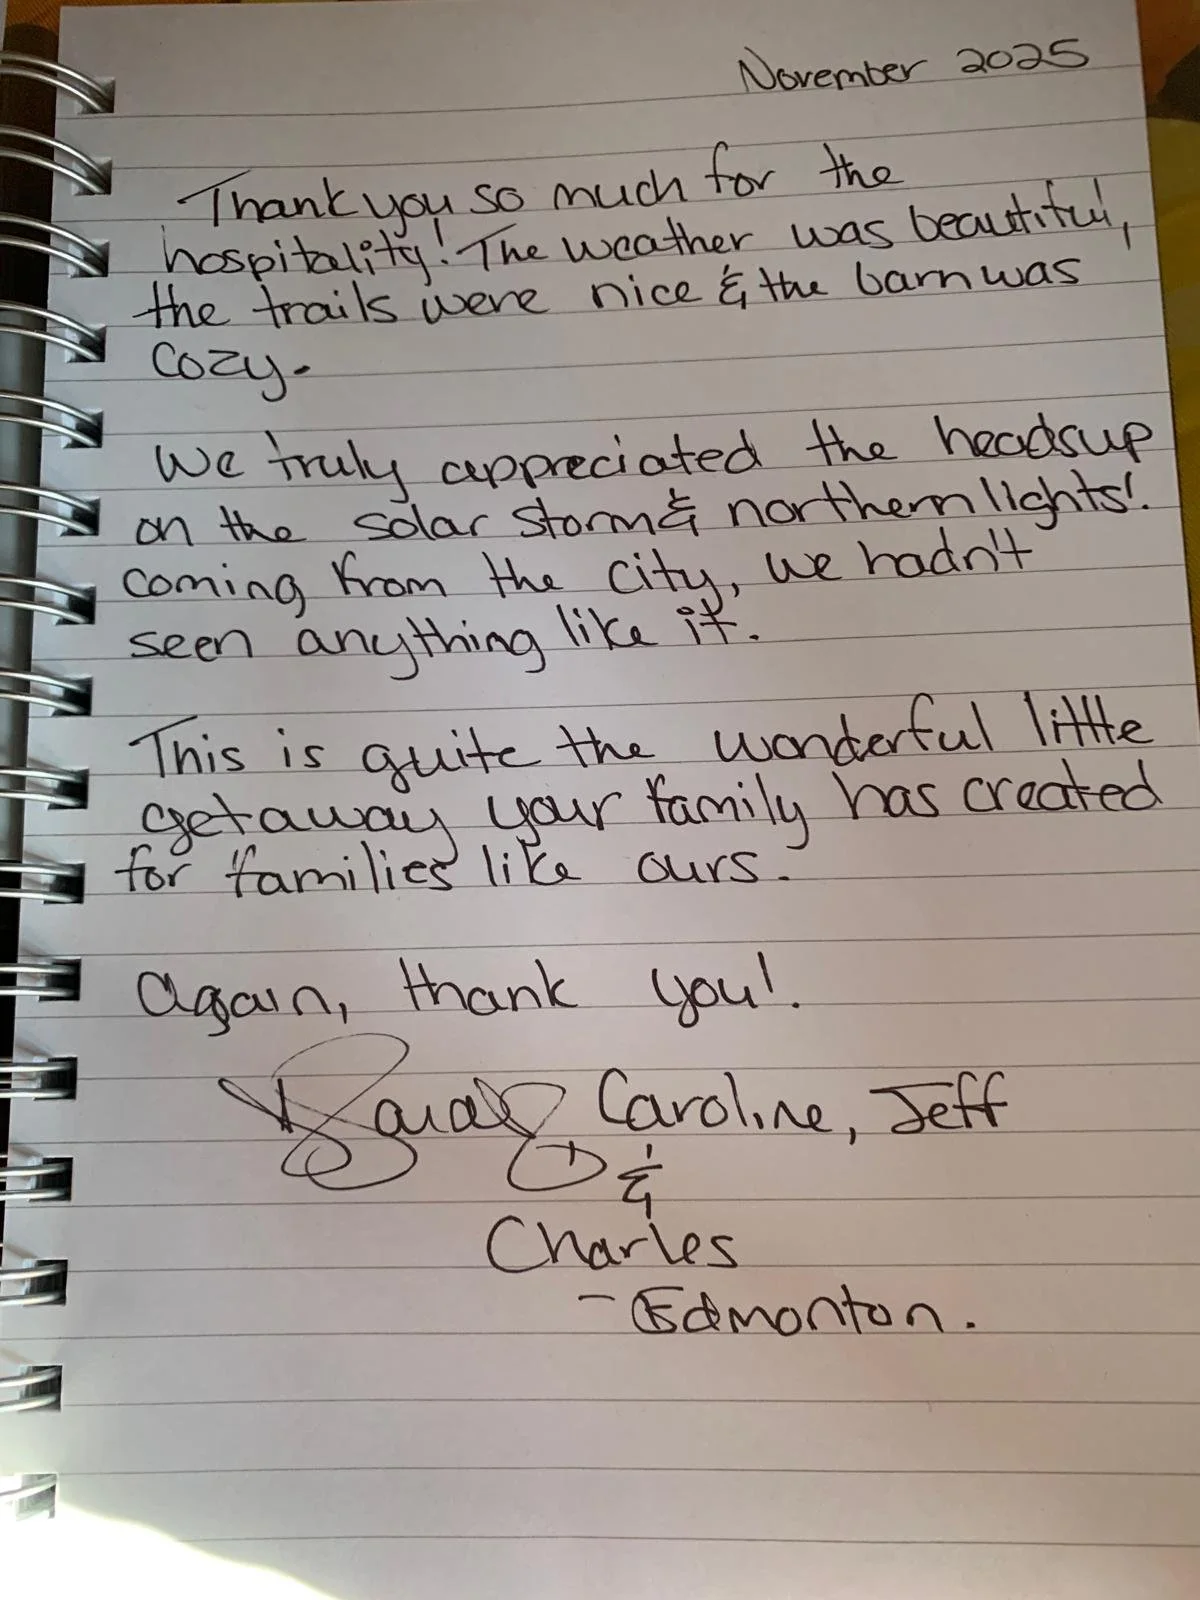 November 2025
Thank you so much for the
hospitality! The weather was beautiful,
the trails were nice & the barn was
cozy.
We truly appreciated the headsup
on the solar storm & northern lights!
Coming from the city, we hadn't
seen anything like it.
This is quite the wonderful little
getaway your family has created
for families like ours.
Again, thank you!
Sarah, Caroline, Jeff
&
Charles
- Edmonton.